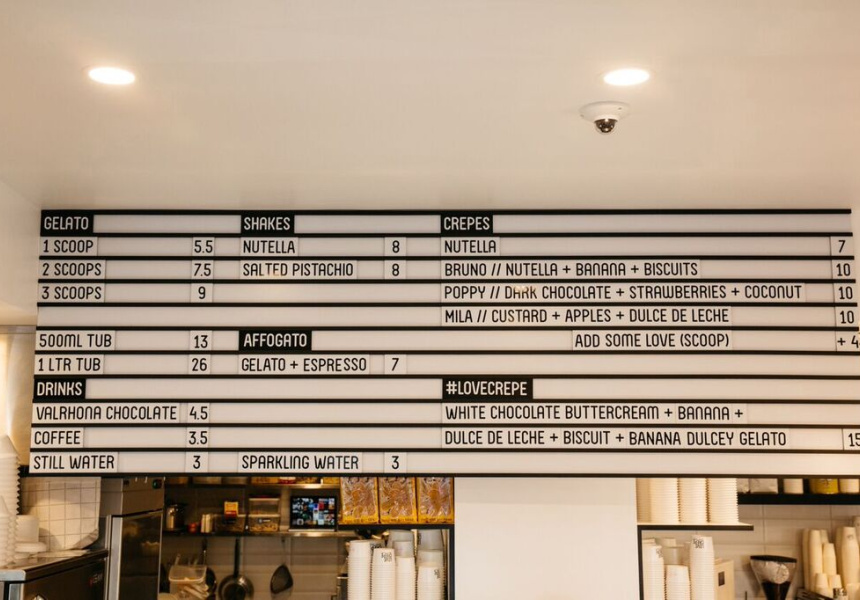 GELATO
1 SCOOP 5.5
2 SCOOPS 7.5
3 SCOOPS 9
500ML TUB 13
1 LTR TUB 26
DRINKS
VALRHONA CHOCOLATE 4.5
COFFEE 3.5
STILL WATER 3
SHAKES
NUTELLA 8
SALTED PISTACHIO 8
AFFOGATO
GELATO + ESPRESSO 7
SPARKLING WATER 3
CREPES
NUTELLA 7
BRUNO // NUTELLA + BANANA + BISCUITS 10
POPPY // DARK CHOCOLATE + STRAWBERRIES + COCONUT 10
MILA // CUSTARD + APPLES + DULCE DE LECHE 10
ADD SOME LOVE (SCOOP) + 4
#LOVECREPE
WHITE CHOCOLATE BUTTERCREAM + BANANA +
DULCE DE LECHE + BISCUIT + BANANA DULCEY GELATO 15